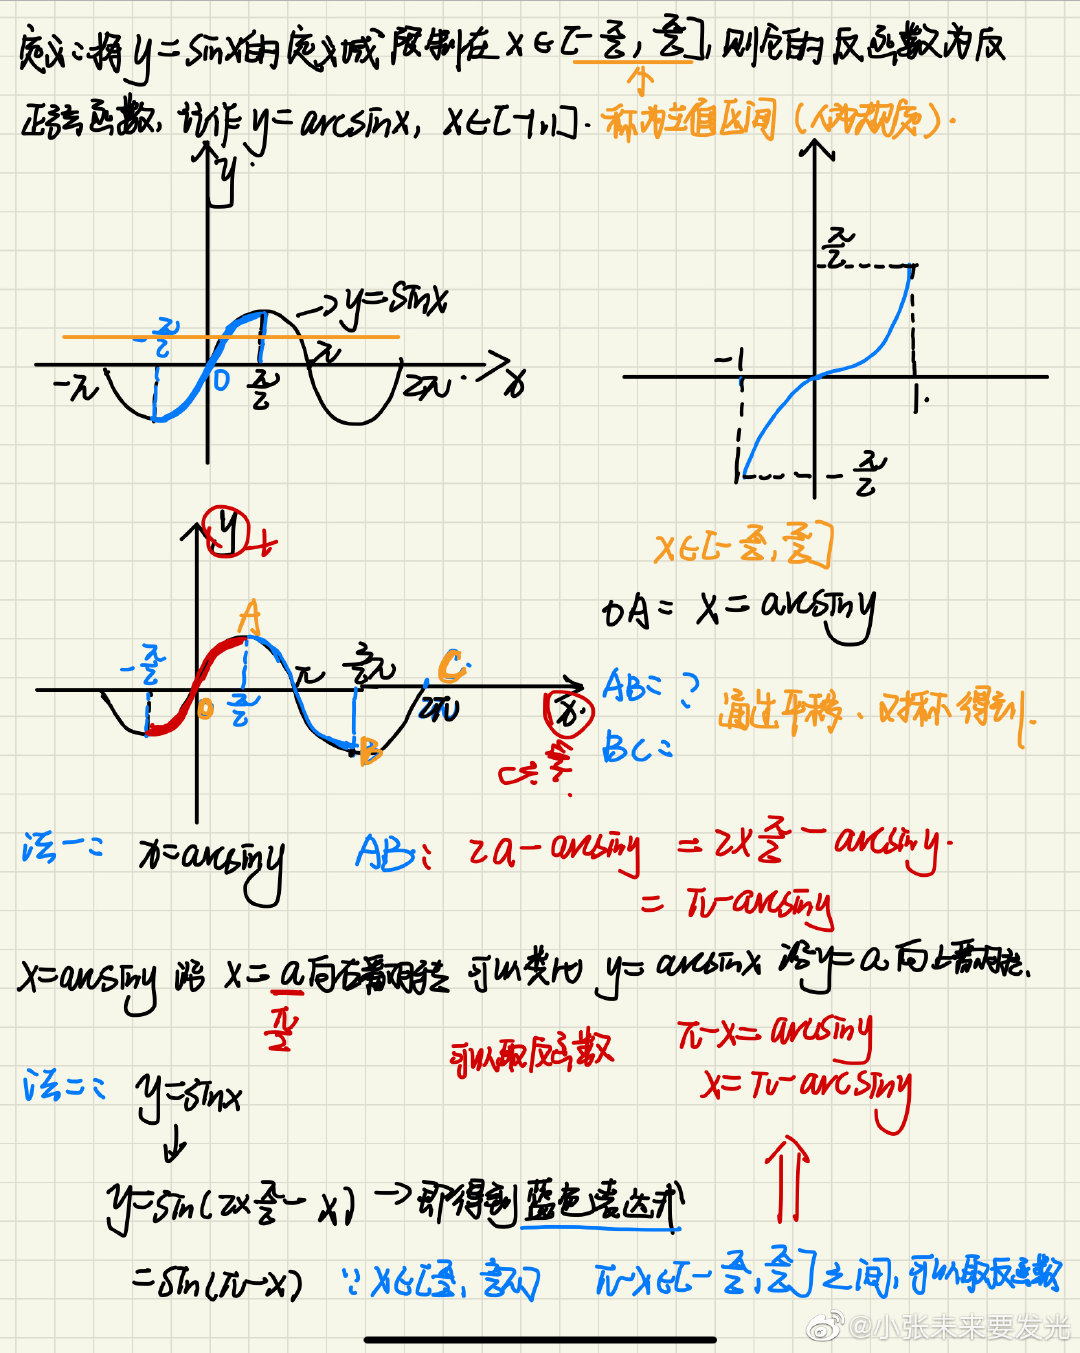 定义：将 y=sinx的定义域 限制在 x∈[-π/2, π/2], 则它的反函数为反
正弦函数, 记作 y=arcsinx, x∈[-1,1]. 称为主值区间 (人为规定).
y
y=sinx
-π/2
-π
0
π/2
π
2π
x
π/2
-1
1.
-π/2
y t
A
-π/2
0
π/2
π
3/2π
C
2π
x
B
x∈[-π/2, π/2]
OA= x=arcsiny
AB=?
BC=
通过平移、对称得到.
法一： x=arcsiny AB: 2a-arcsiny =2×π/2-arcsiny.
= π-arcsiny
x=arcsiny 沿 x=a向右翻转 可以类比 y=arcsinx 沿y=a向上翻转.
π/2
可以取反函数
π-x=arcsiny
x=π-arcsiny
法二： y=sinx
↓
y=sin(2×π/2-x) →即得到蓝色表达式
=sin(π-x) ∵x∈[π/2, 3/2π] π-x∈[-π/2, π/2]之间,可以取反函数
@小张未来要发光